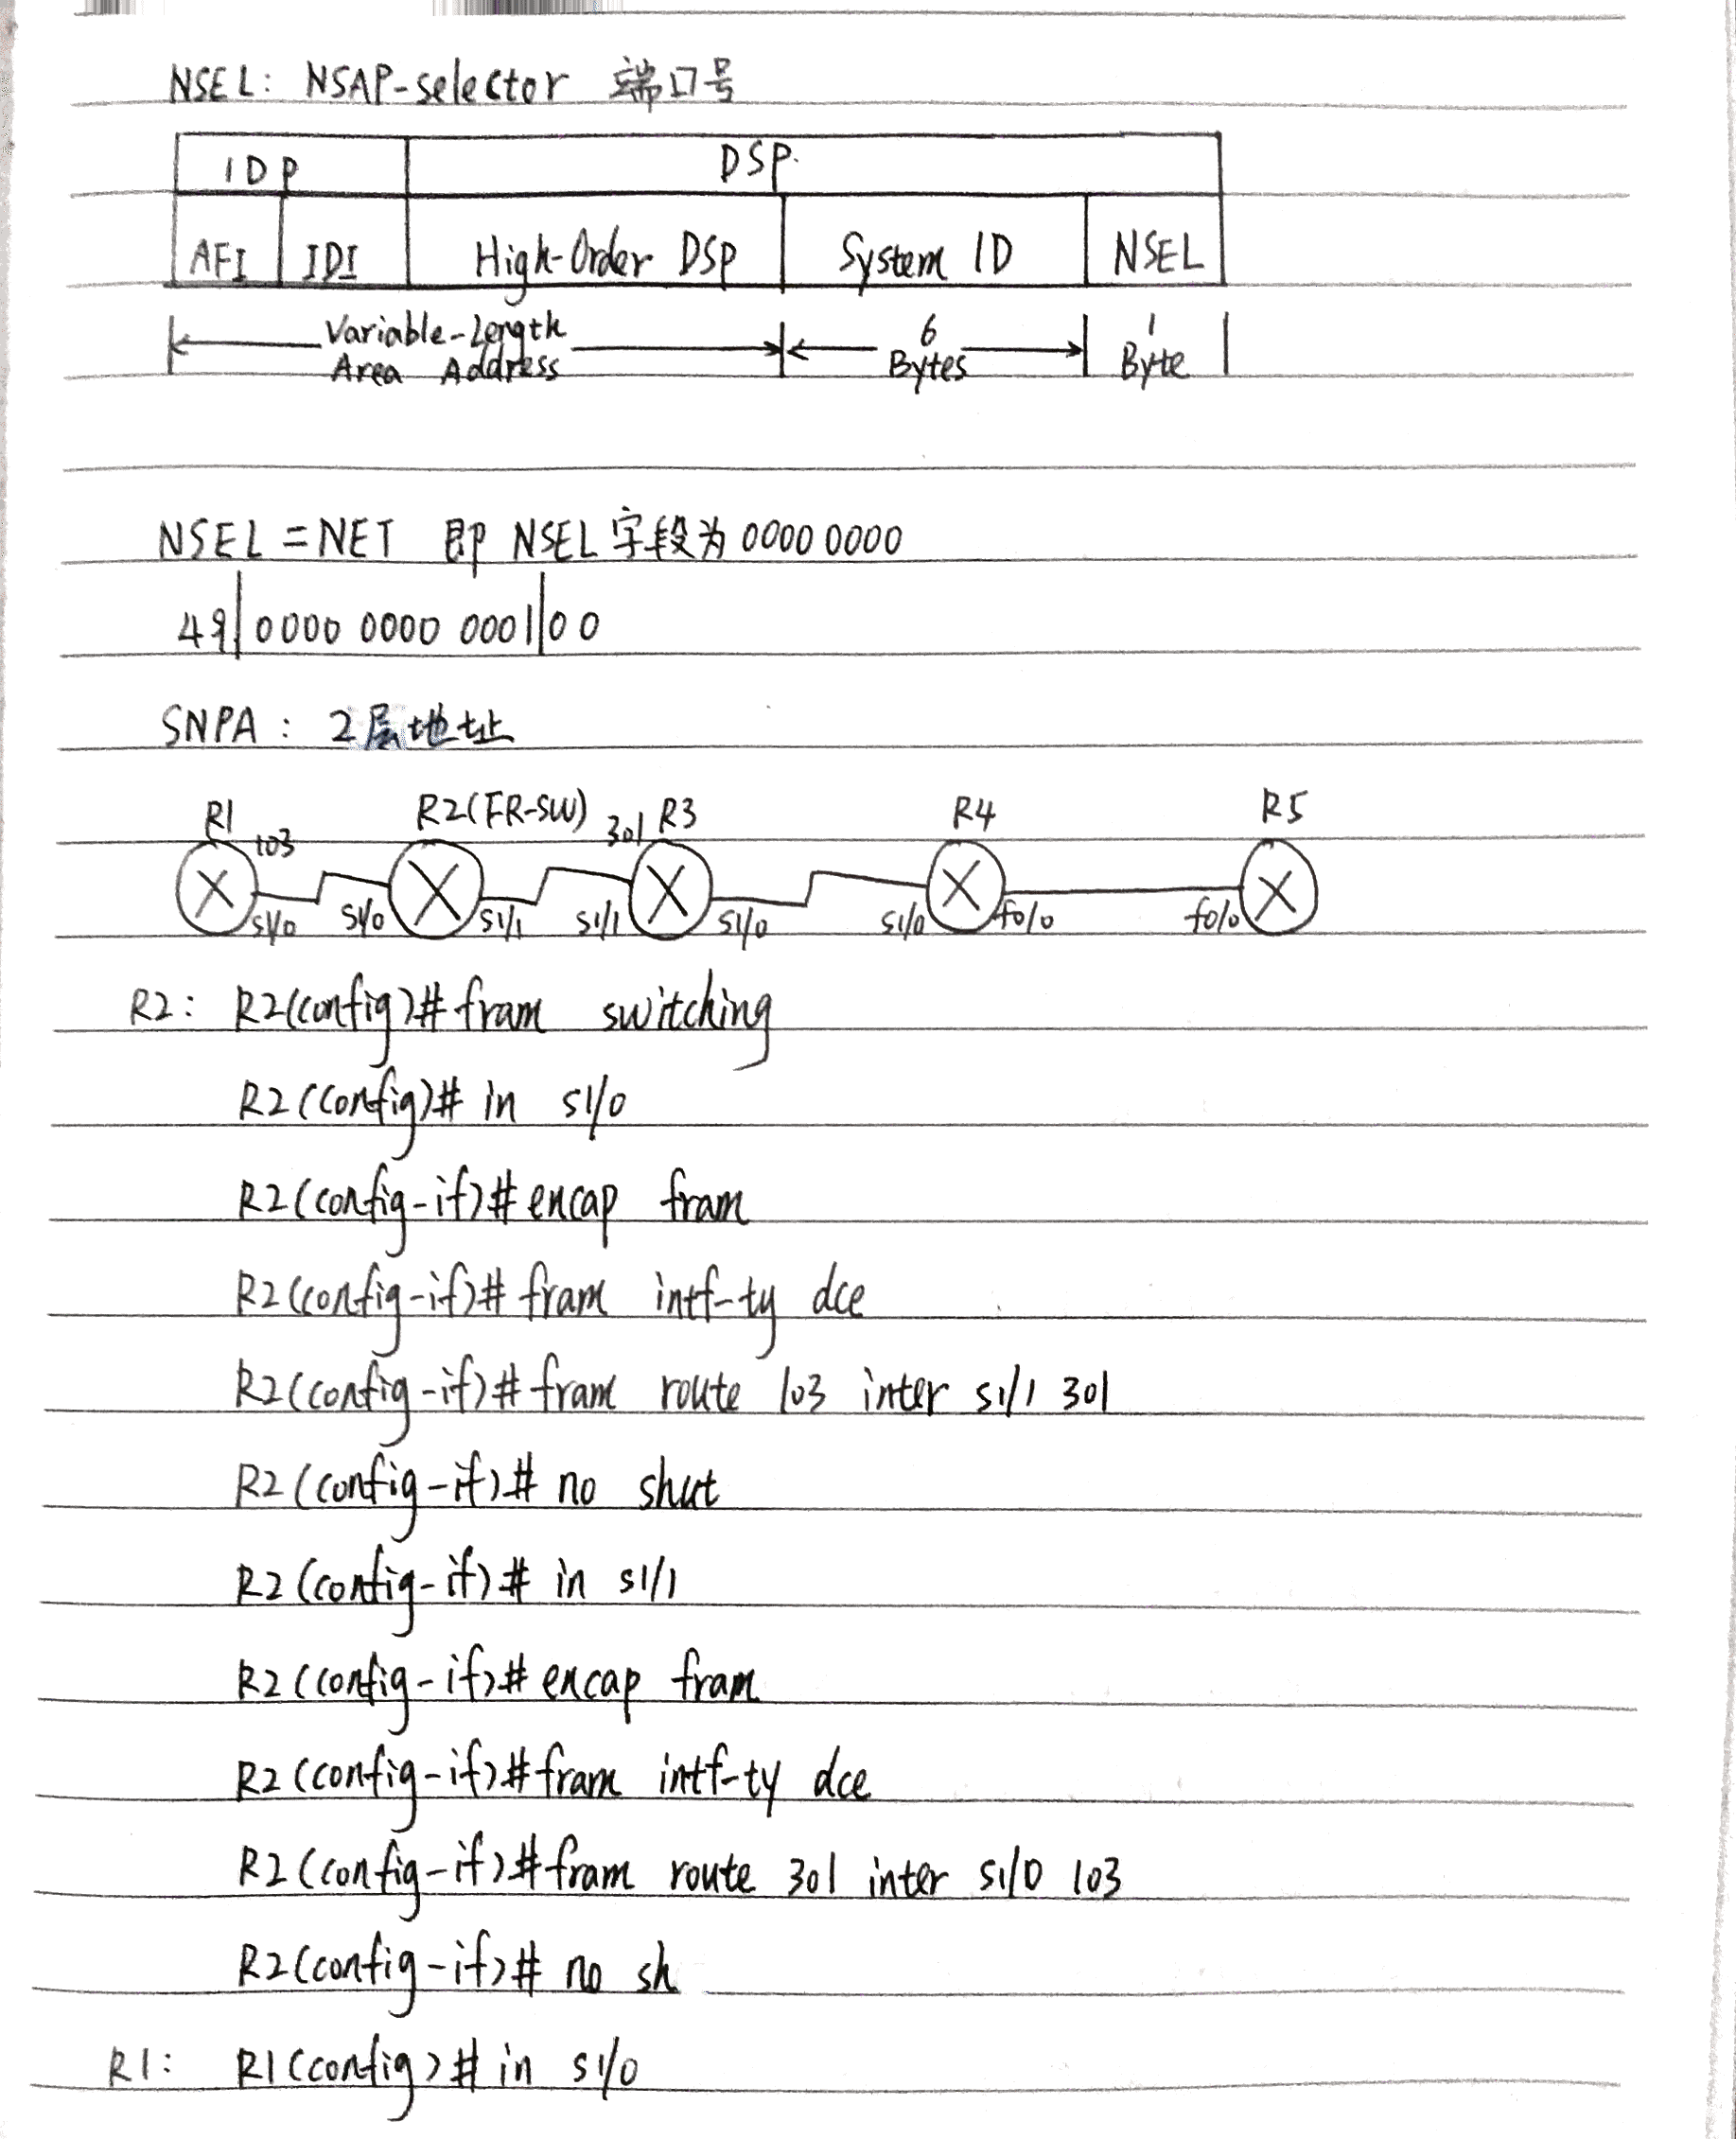 NSEL: NSAP-selector 端口号
IDP DSP
AFI IDI High-Order DSP System ID NSEL
Variable-Length 6 1
Area Address Bytes Byte
NSEL=NET 即 NSEL字段为 0000 0000
49|0000 0000 0001|00
SNPA: 2层地址
R1 R2(FR-SW) R3 R4 R5
103 301
s1/0 s1/0 s1/1 s1/1 s1/0 s1/0 f0/0 f0/0
R2: R2(config)# fram switching
R2(config)# in s1/0
R2(config-if)# encap fram
R2(config-if)# fram intf-ty dce
R2(config-if)# fram route 103 inter s1/1 301
R2(config-if)# no shut
R2(config-if)# in s1/1
R2(config-if)# encap fram
R2(config-if)# fram intf-ty dce
R2(config-if)# fram route 301 inter s1/0 103
R2(config-if)# no sh
R1: R1(config)# in s1/0